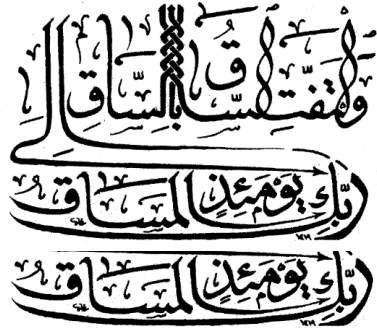 والتفت الساق بالساق إلى
ربك يومئذ المساق
ربك يومئذ المساق